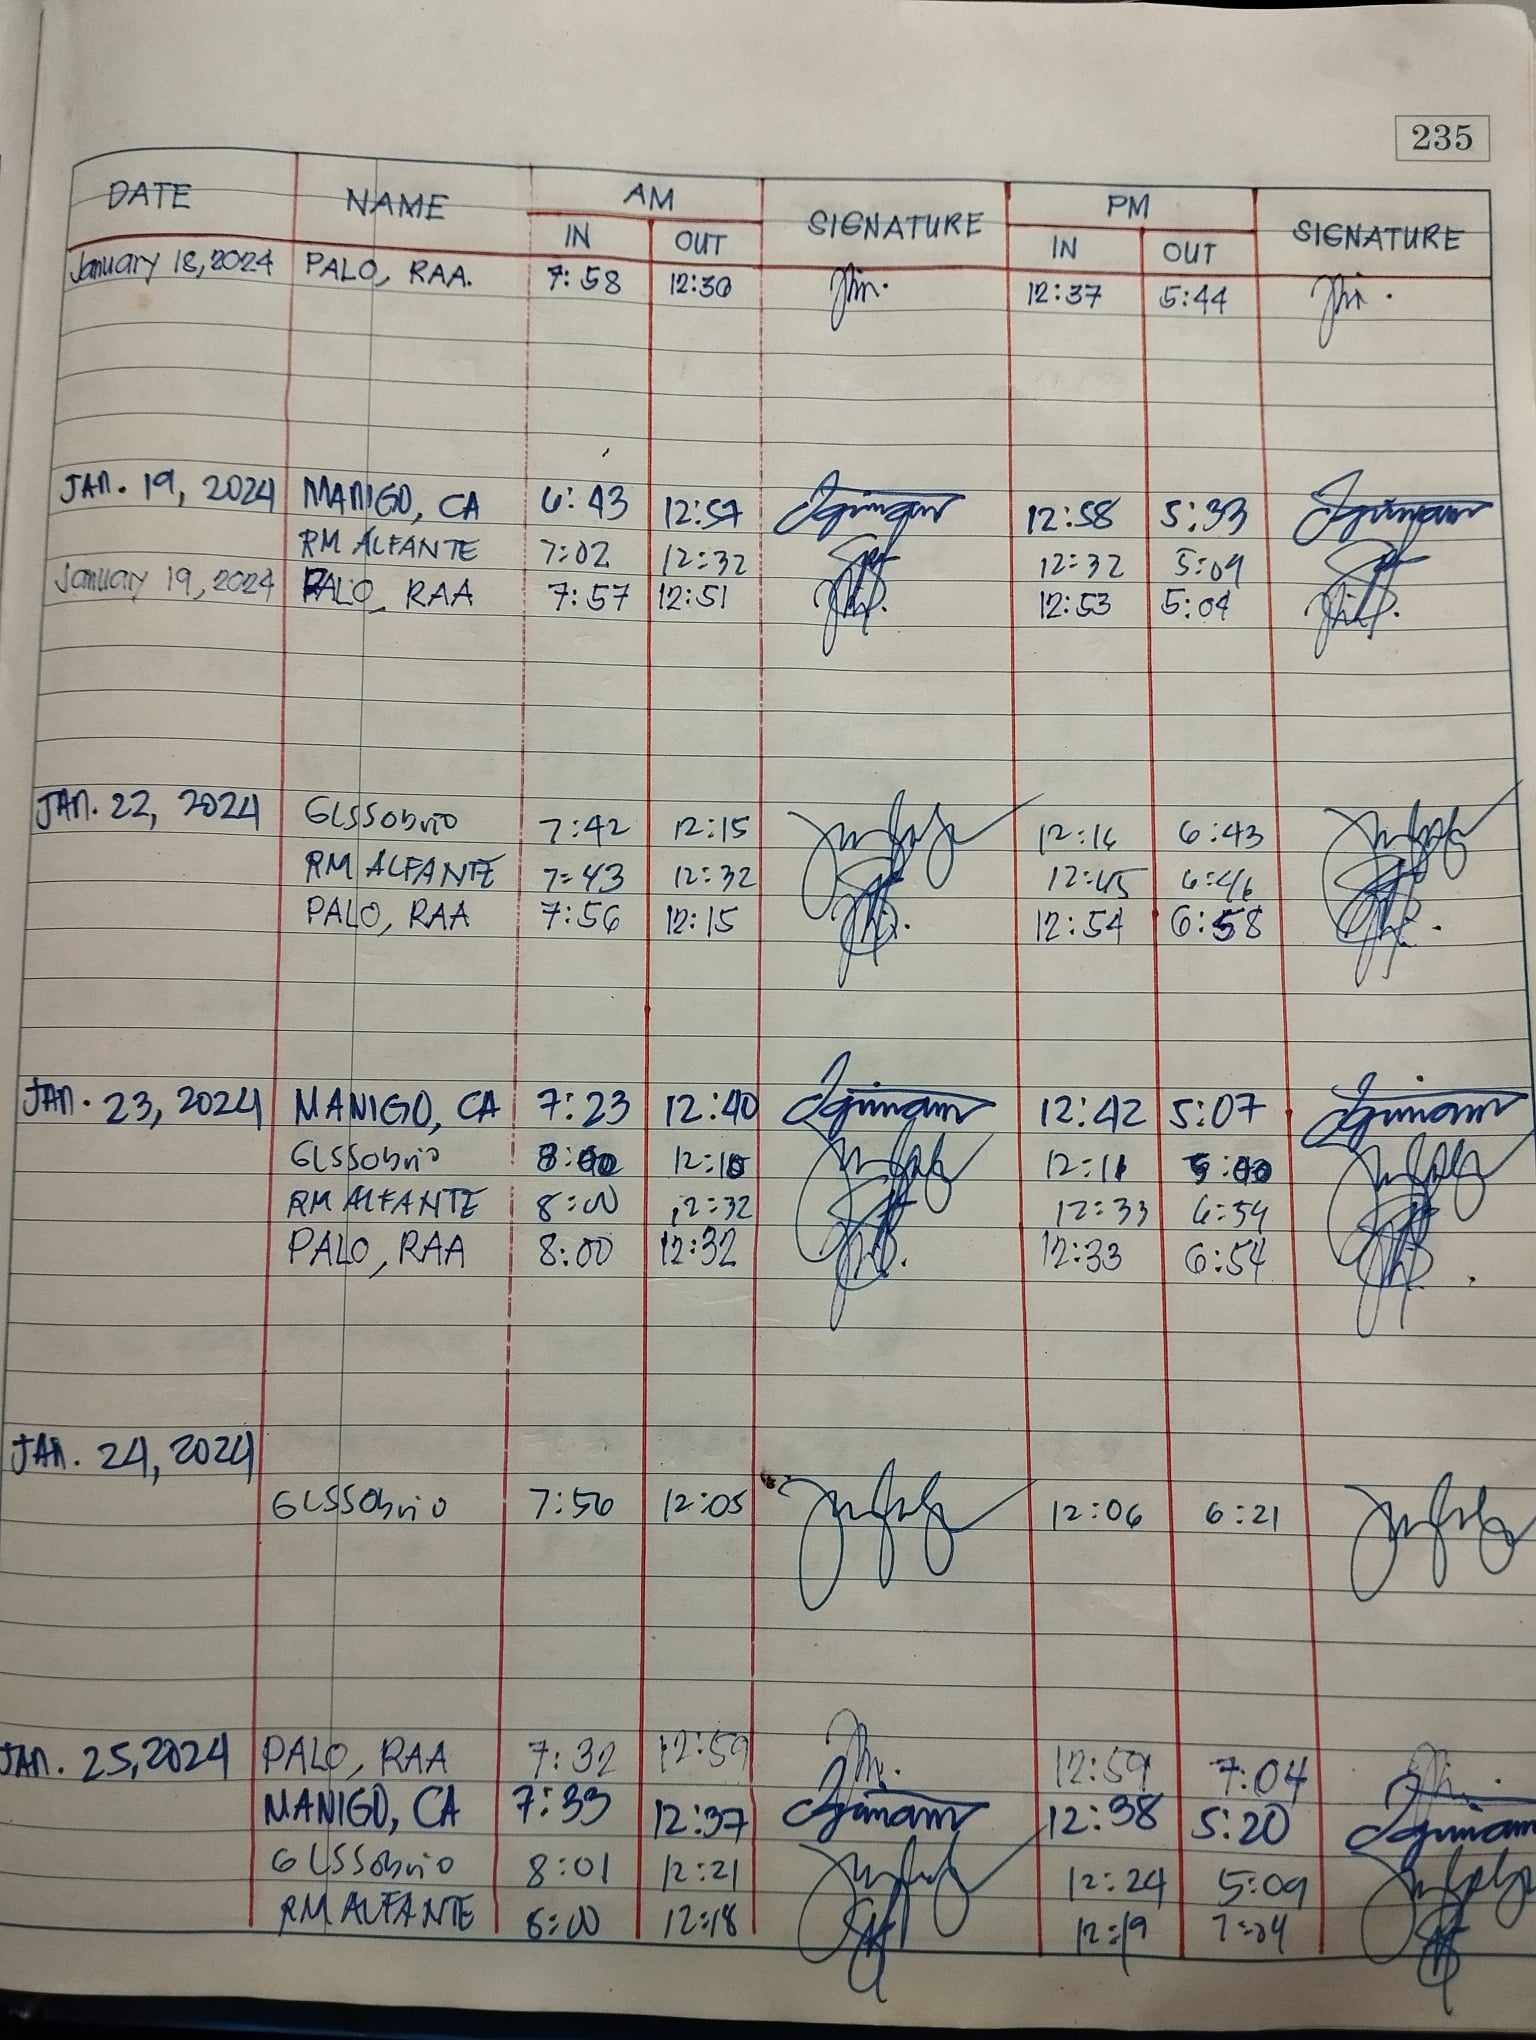 235
DATE NAME AM SIGNATURE PM SIGNATURE
IN OUT IN OUT
January 18, 2024 PALO, RAA. 7:58 12:30 12:37 5:44
JAN. 19, 2024 MANIGO, CA 6:43 12:57 12:58 5:33
RM ALFANTE 7:02 12:32 12:32 5:09
January 19, 2024 PALO, RAA 7:57 12:51 12:53 5:04
JAN. 22, 2024 GLSSobrio 7:42 12:15 12:16 6:43
RM ALFANTE 7:43 12:32 12:45 6:46
PALO, RAA 7:56 12:15 12:54 6:58
JAN. 23, 2024 MANIGO, CA 7:23 12:40 12:42 5:07
GLSSobrio 8:00 12:10 12:11 5:00
RM ALFANTE 8:00 12:32 12:33 6:54
PALO, RAA 8:00 12:32 12:33 6:54
JAN. 24, 2024
GLSSobrio 7:56 12:05 12:06 6:21
JAN. 25, 2024 PALO, RAA 7:32 12:59 12:59 7:04
MANIGO, CA 7:33 12:37 12:38 5:20
GLSSobrio 8:01 12:21 12:24 5:09
RM ALFANTE 8:00 12:18 12:19